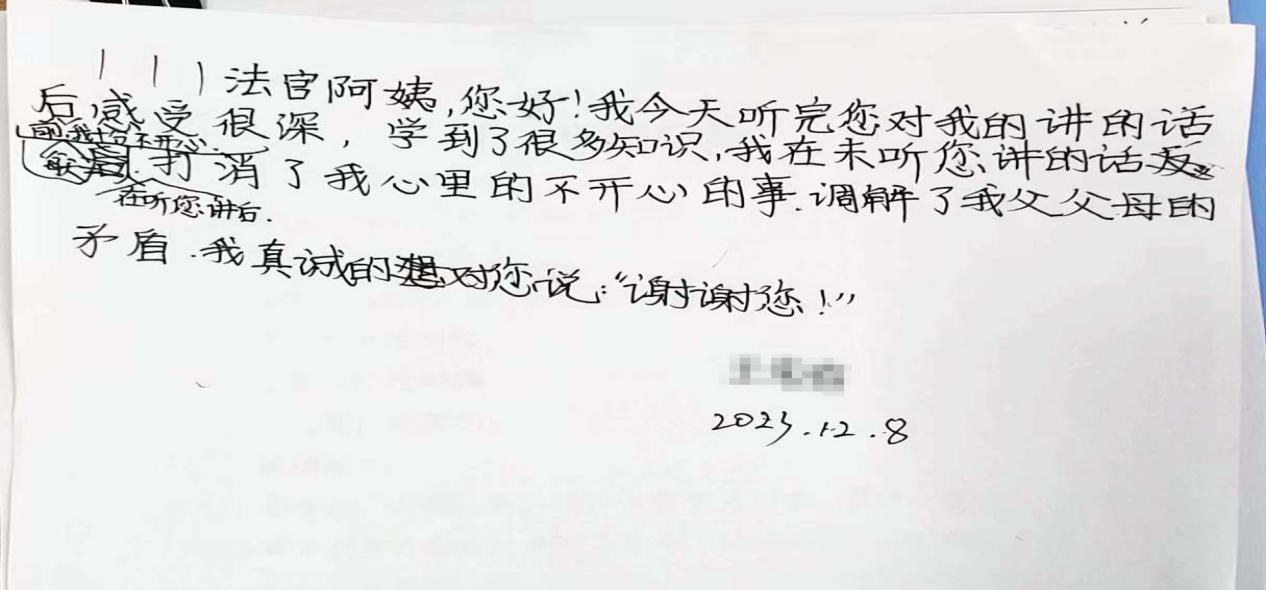 法官阿姨,您好!我今天听完您对我的讲的话
后,感受很深,学到了很多知识,我在未听您讲的话
前我十分不开心.
打消了我心里的不开心的事.调解了我父父母的
在听您讲后.
矛盾.我真诚的想对您说:“谢谢您!”
2023.12.8